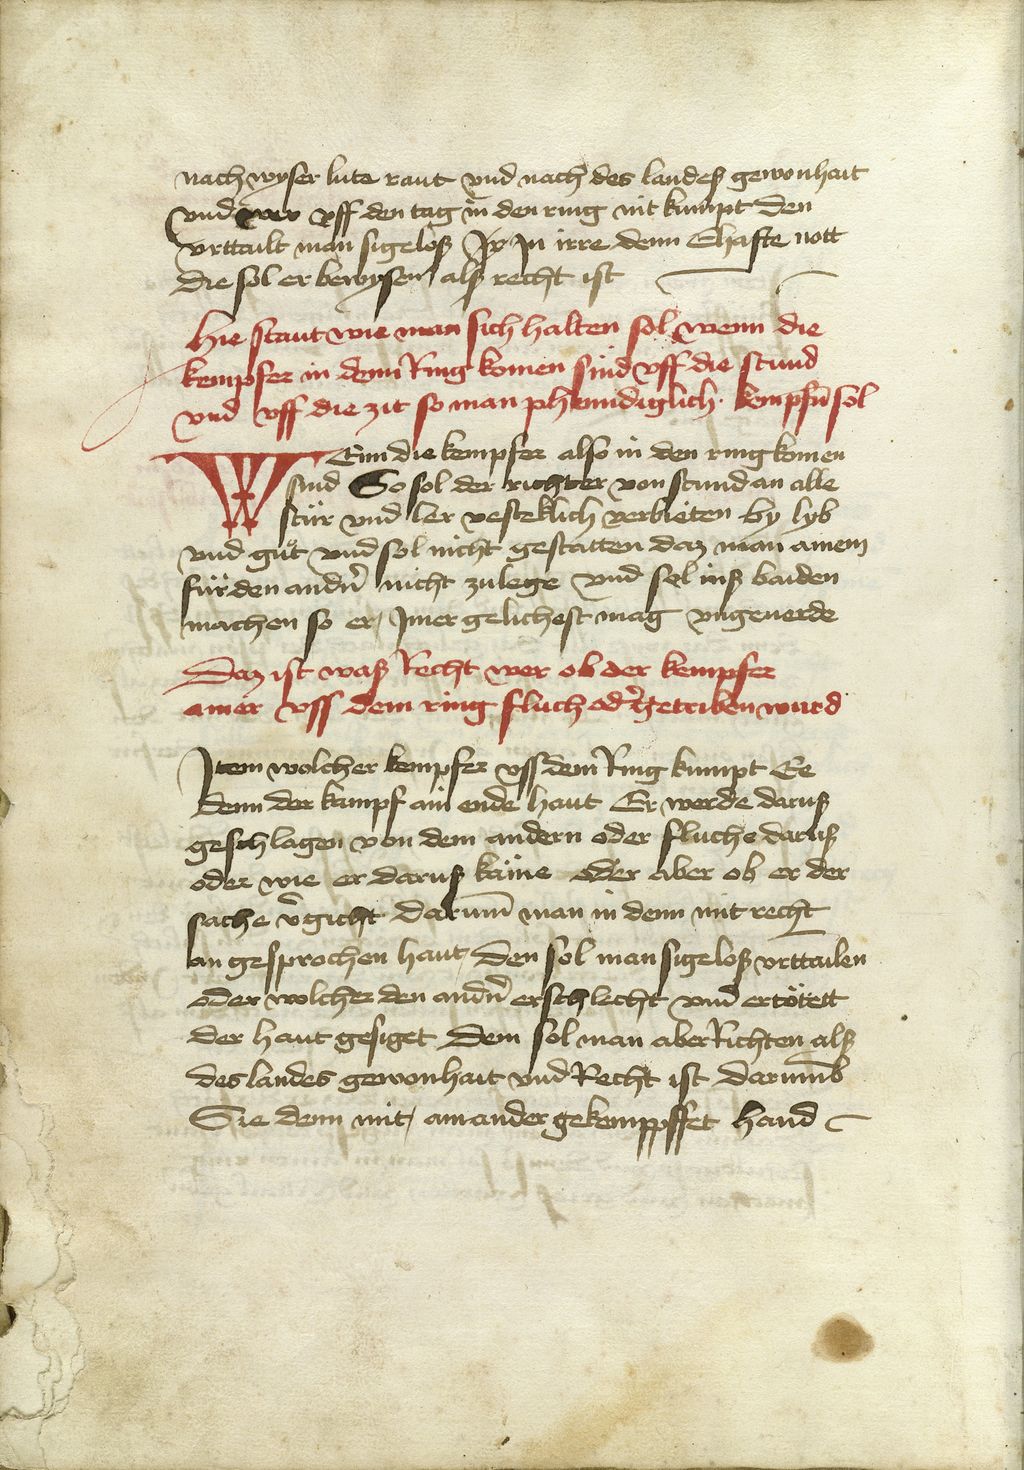 nach wyser lute raut vnd nach des landeß gewonhait
vnd wer vff den tag in den ring nit kumpt den
vrttailt man sigeloß In irre denn Ehafte nott
die sol er bewysen alß recht ist
Hie staut wie man sich halten sol wenn die
kempfer in denn Ring komen sind vff die stund
vnd vff die zit so man kempfen̄ sol
WEnn die kempfer also in den ring komen
sind So sol der richter von stund an alle
stür vnd ler vesteklich verbieten by lyb
vnd guͦt vnd sol nicht gestatten daz man ainem
für den andn̄ nicht zulege vnd sol inß baiden
machen so er Imer gelichest mag vngeuerde
Daz ist waß Recht wer ob der kempfer
ainer vss dem ring fluch od̄ getriben wurd
Item wolcher kempfer vss dem Ring kumpt Ee
denn der kampf ain ende haut Er werde daruß
geschlagen von dem andern oder fluche daruß
oder wie er daruß käme oder aber ob er der
sache v̄gicht darum̄ man in denn mit recht
an gesprochen haut den sol man sigeloß vrttailen
oder wolcher den andn̄ erschlecht vnd ertötett
der haut gesiget dem sol man aber Richten alß
des landes gewonhait vnd Recht ist darumb
Sie denn mit ainander gekemppffet hand